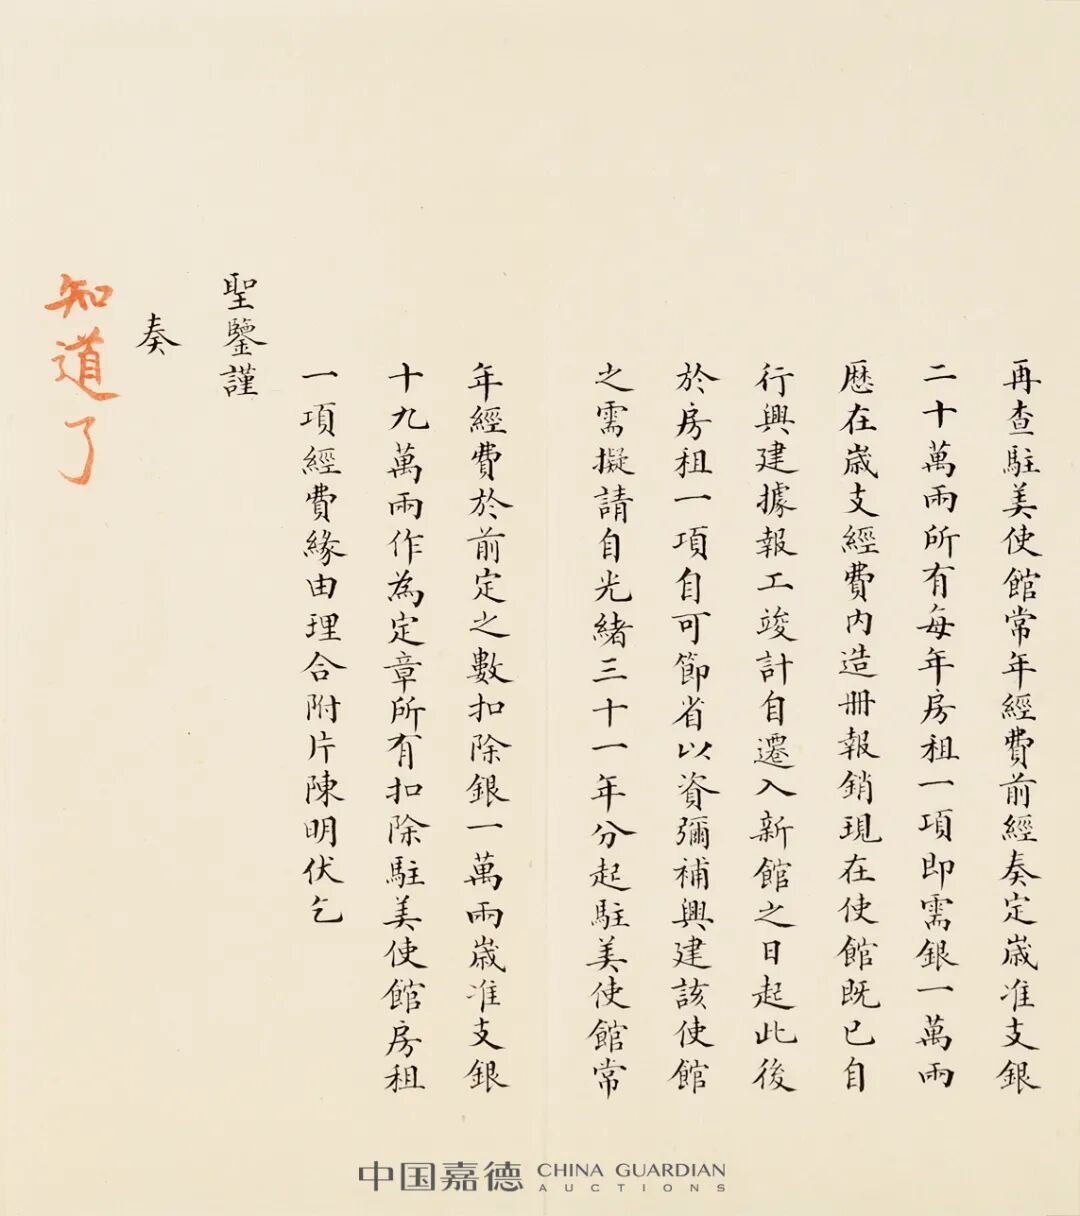 再查駐美使館常年經費前經奏定歲准支銀
二十萬兩所有每年房租一項即需銀一萬兩
歷在歲支經費內造冊報銷現在使館既已自
行興建據報工竣計自遷入新館之日起此後
於房租一項自可節省以資彌補興建該使館
之需擬請自光緒三十一年分起駐美使館常
年經費於前定之數扣除銀一萬兩歲准支銀
十九萬兩作為定章所有扣除駐美使館房租
一項經費緣由理合附片陳明伏乞
聖鑒謹
奏
知道了
中国嘉德 CHINA GUARDIAN AUCTIONS